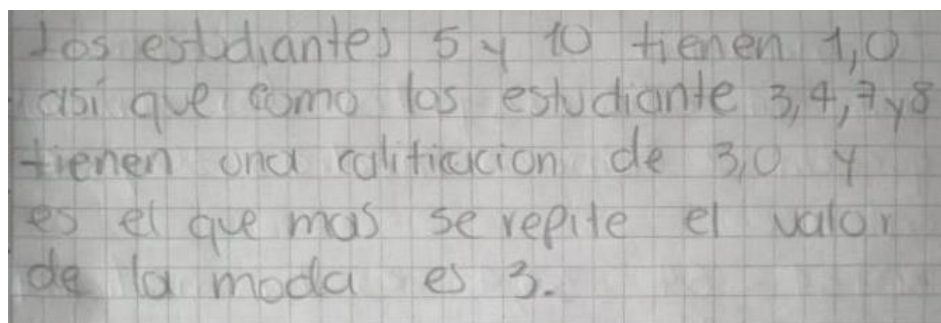 Los estudiantes 5 y 10 tienen 1,0
asi que como los estudiante 3,4,7y8
tienen una calificacion de 3,0 y
es el que mas se repite el valor
de la moda es 3.